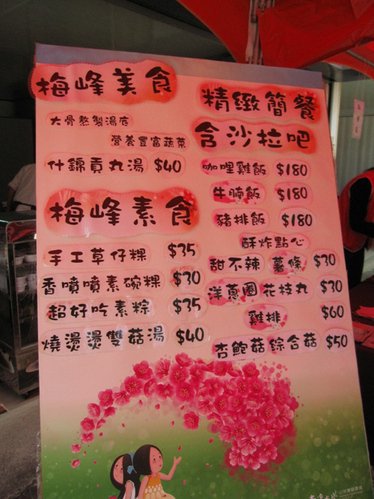 梅峰美食
大骨熬製湯底
營養豐富蔬菜
什錦貢丸湯 $40
梅峰素食
手工草仔粿 $35
香噴噴素碗粿 $30
超好吃素粽 $35
燒燙燙雙菇湯 $40
精緻簡餐
含沙拉吧
咖哩雞飯 $180
牛腩飯 $180
豬排飯 $180
酥炸點心
甜不辣 薯條 $30
洋蔥圈 花枝丸 $30
雞排 $60
杏鮑菇 綜合菇 $50